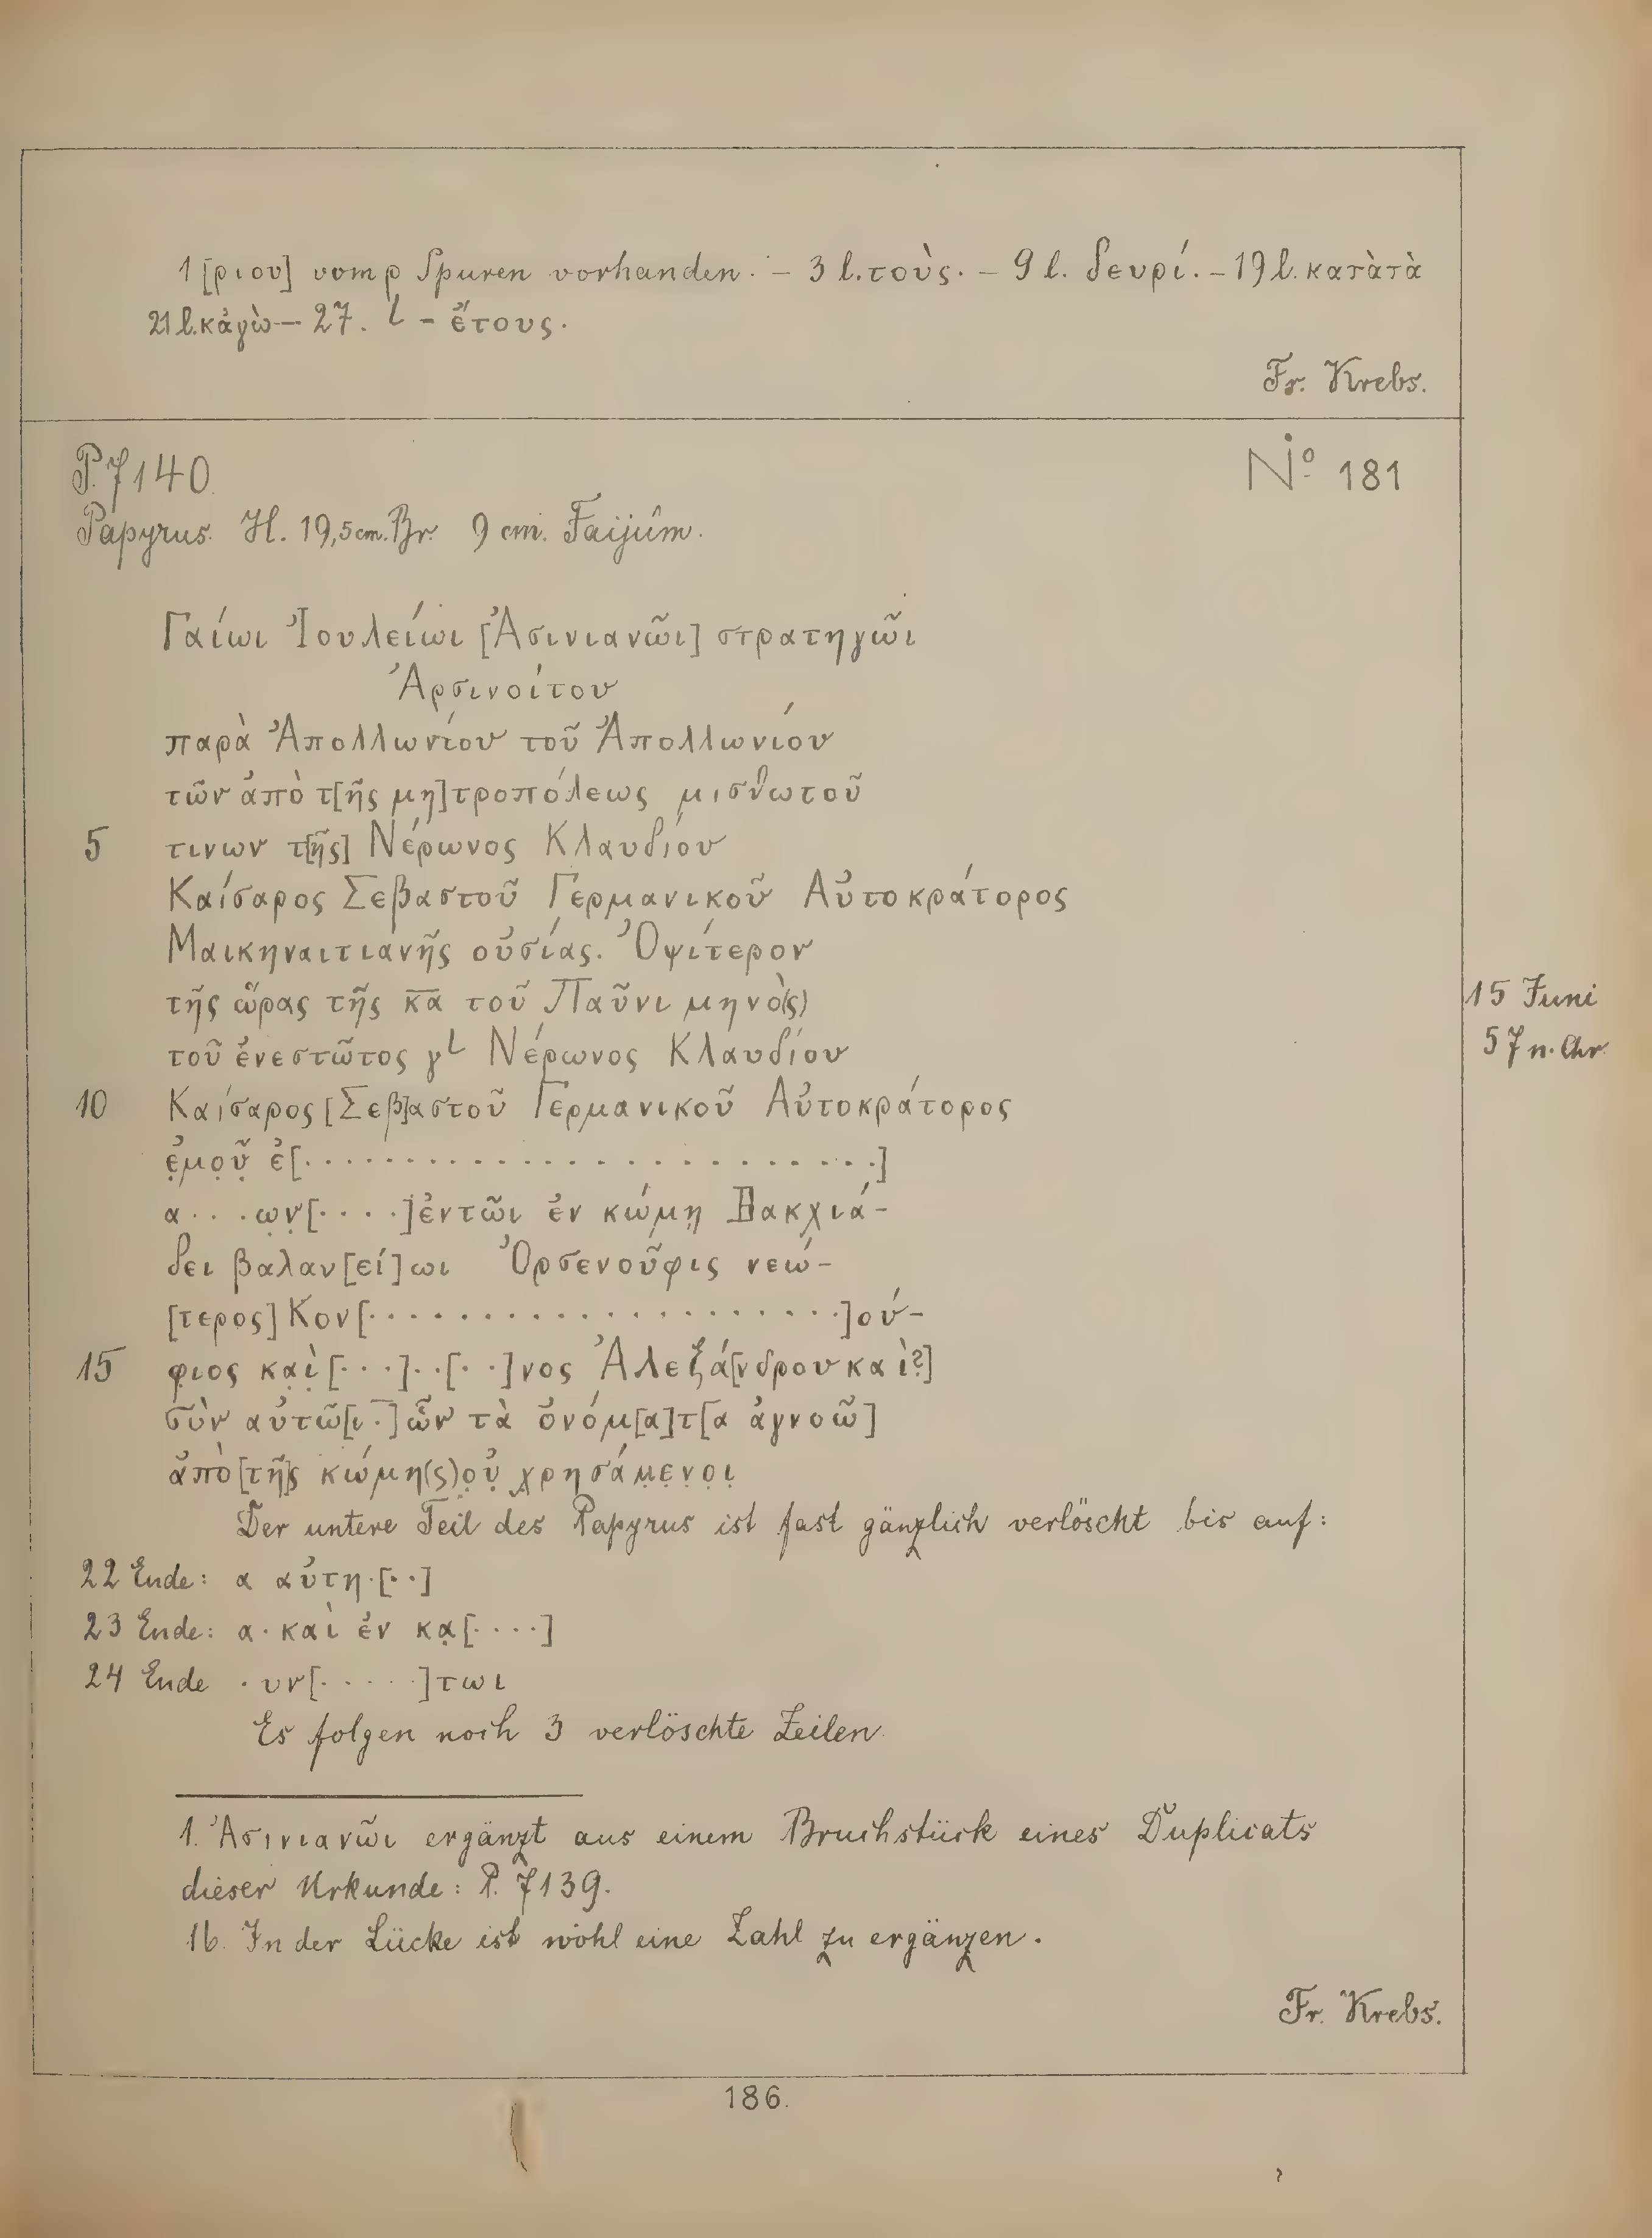 1 [ριου] vom ρ Spuren vorhanden. – 3 l. τοὺς. – 9 l. δευρί. – 19 l. κατὰ τὰ
21 l. κἀγὼ — 27. L – ἔτους.
Fr. Krebs.
P. 7140.
Nº 181
Papyrus. H. 19,5 cm. Br. 9 cm. Faijûm.
Γαίωι Ἰουλείωι [Ἀσινιανῶι] στρατηγῶι
Ἀρσινοίτου
παρὰ Ἀπολλωνίου τοῦ Ἀπολλωνίου
τῶν ἀπὸ τ[ῆς μη]τροπόλεως μισθωτοῦ
5 τινων τ[ῆς] Νέρωνος Κλαυδίου
Καίσαρος Σεβαστοῦ Γερμανικοῦ Αὐτοκράτορος
Μαικηναιτιανῆς οὐσίας. Ὀψίτερον
τῆς ὥρας τῆς κ̅α̅ τοῦ Παῦνι μηνὸ(ς)
15 Juni
57 n. Chr.
τοῦ ἐνεστῶτος γL Νέρωνος Κλαυδίου
10 Καίσαρος [Σεβ]αστοῦ Γερμανικοῦ Αὐτοκράτορος
ἐ̣μο̣ῦ̣ ἐ[. . . . . . . . . . . . . . . . . . . . . . . .]
α . . . ων̣[. . . .]έντωι ἐν κώμῃ Βακχιά-
δει βαλαν[εί]ωι Ὀρσενοῦφις νεώ-
[τερος] Κον[. . . . . . . . . . . . . . . . . .]ού-
15 φιος κα̣ὶ̣ [. . .] . . [. .]νος Ἀλεξά[νδρου καὶ?]
σὺν αὐτῶ[ι .̅] ὧν τὰ ὀνόμ[α]τ[α ἀγνοῶ]
ἀπὸ [τῆ]ς κώμη(ς) ο̣ὐ̣ χ̣ρησάμ̣ε̣ν̣ο̣ι̣
Der untere Teil des Papyrus ist fast gänzlich verlöscht bis auf:
22 Ende: α αὐτη . [. .]
23 Ende: α . καὶ ἐν κα̣[. . . .]
24 Ende . υν[. . . . .]τωι
Es folgen noch 3 verlöschte Zeilen.
1. Ἀσινιανῶι ergänzt aus einem Bruchstück eines Duplicats
dieser Urkunde: P. 7139.
16. In der Lücke ist wohl eine Zahl zu ergänzen.
Fr. Krebs.
186.